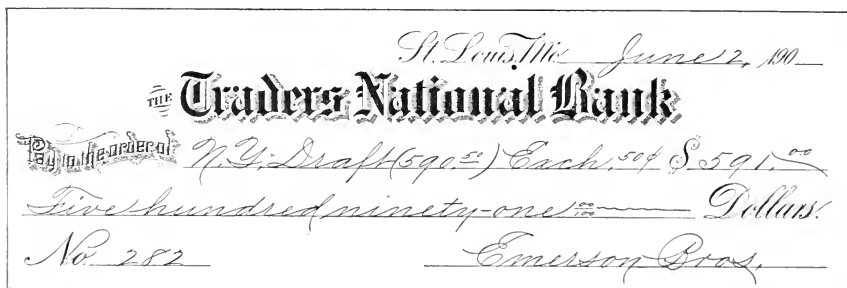 St. Louis, Mo. June 2, 190—
THE Traders National Bank
Pay to the order of N.Y. Draft (590.50) Exch. .50¢ $591.00
Five hundred ninety-one 00/100 Dollars.
No. 282 Emerson Bros.